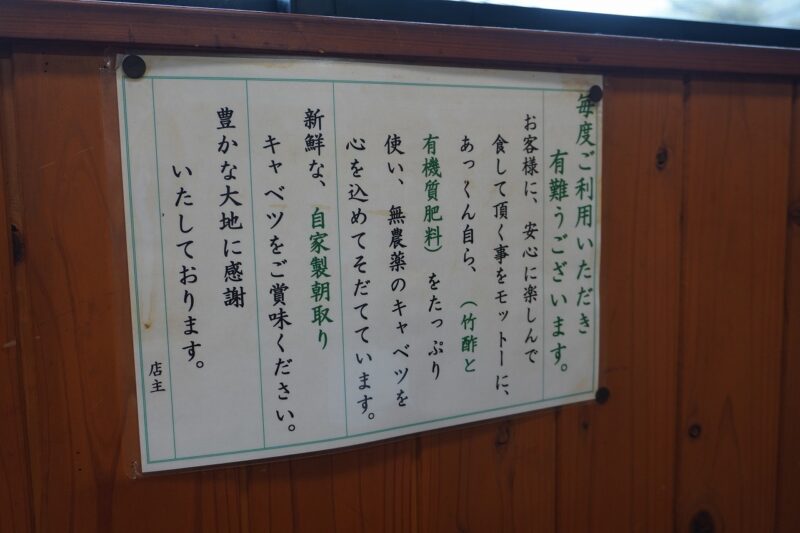 毎度ご利用いただき
有難うございます。
お客様に、安心に楽しんで
食して頂く事をモットーに、
あっくん自ら、(竹酢と
有機質肥料)をたっぷり
使い、無農薬のキャベツを
心を込めてそだてています。
新鮮な、自家製朝取り
キャベツをご賞味ください。
豊かな大地に感謝
いたしております。
店主